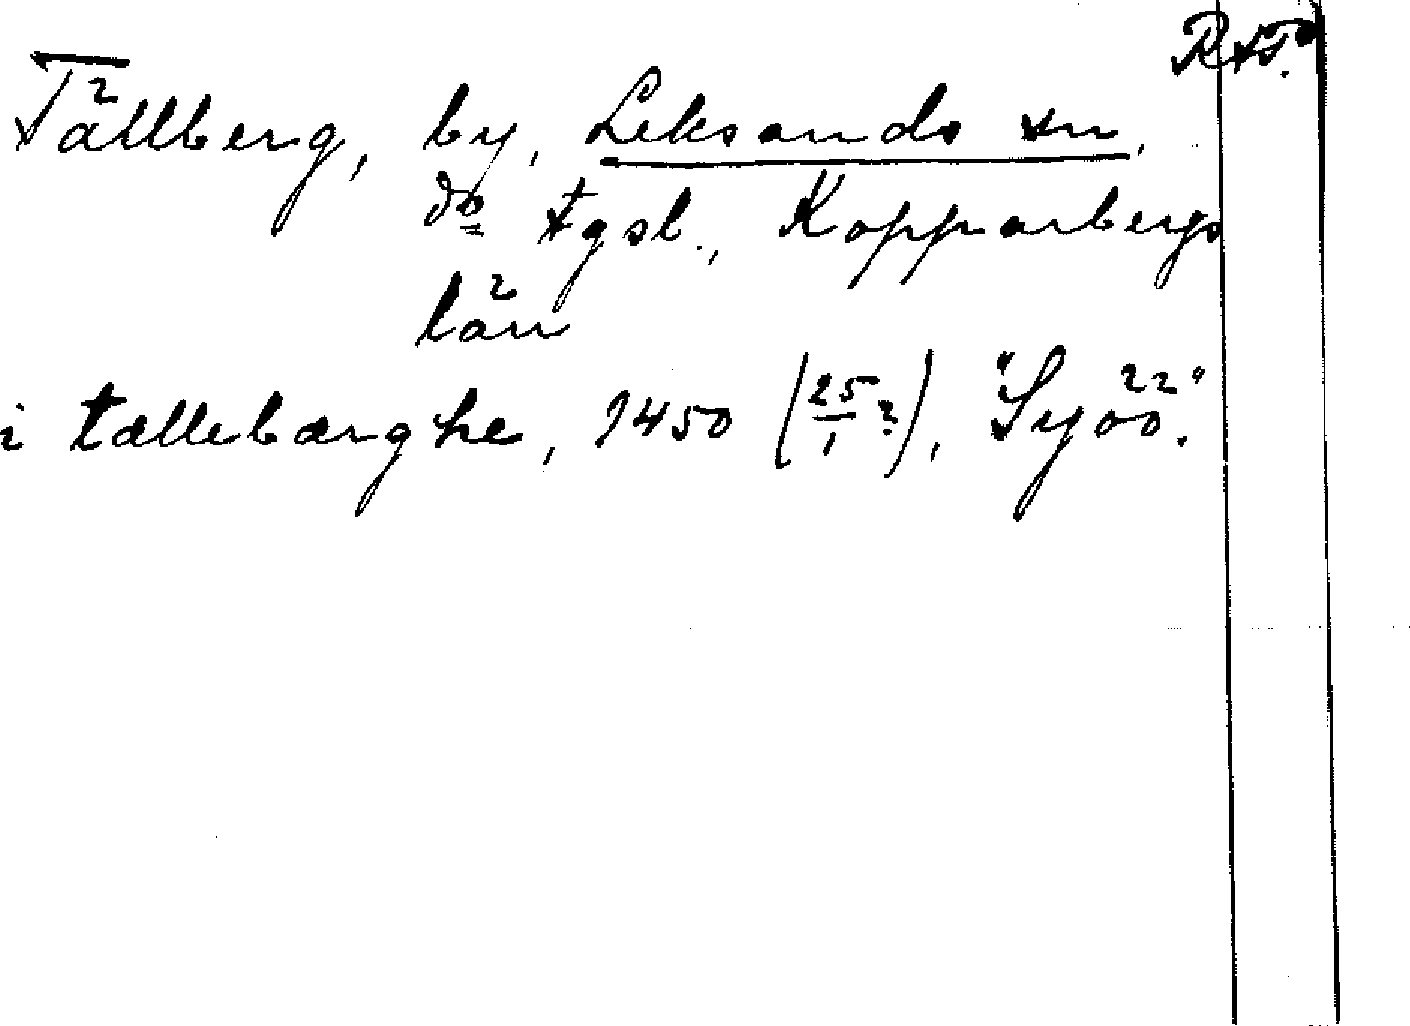 Tällberg, by, Leksands sn,
do tgsl., Kopparbergs
län
i tællebærghe, 1450 (25/1 ?),